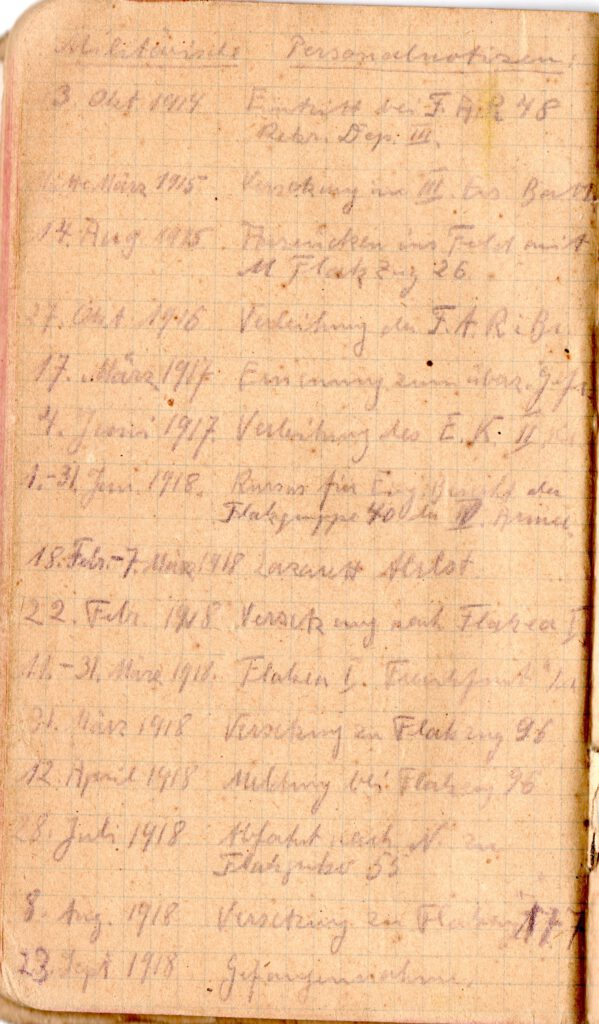 Militärische Personalnotizen:
3. Okt 1914 Eintritt bei F. A. R 48
Rekr. Dep. III.
März 1915 Versetzung in III. Ers. Batt.
14. Aug 1915 Ausrücken ins Feld mit
M Flakzug 26.
27. Okt. 1916 Verleihung des F. A. R.
17. März 1917 Ernennung zum überz. Gefr.
4. Juni 1917. Verleihung des E. K. II
1.-31. 1918. Kursus für der
Flakgruppe 40 der IV. Armee.
18. Febr.-7. März 1918 Lazarett
22. Febr. 1918 Versetzung nach Flakea I
11.-31. März 1918. Flakea I.
31. März 1918 Versetzung zu Flakzug 96
12. April 1918 Meldung bei Flakzug 96
28. Juli 1918 Abfahrt nach N. zu
55
8. Aug. 1918 Versetzung zu Flakzug 177
23. Sept 1918 Gefangennahme.